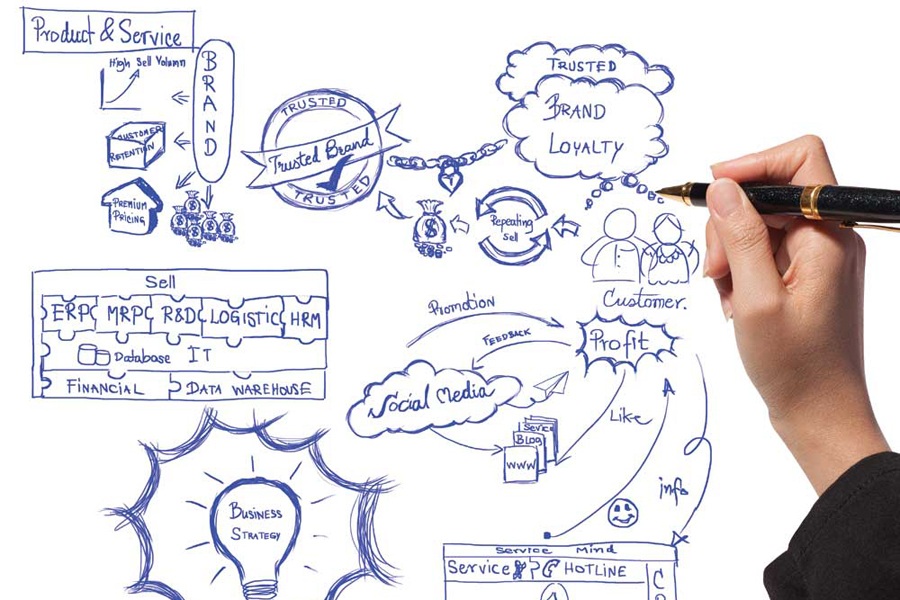 Product & Service
High Sell Volumn
BRAND
CUSTOMER
RETENTION
PREMIUM
PRICING
TRUSTED
Trusted Brand
TRUSTED
TRUSTED
BRAND
LOYALTY
Repeating
Sell
Customer.
Sell
ERP MRP R&D LOGISTIC HRM
Database IT
FINANCIAL DATA WAREHOUSE
Promotion
FEEDBACK
Profit
Social Media
Like
Sevice
BLOG
WWW
info
BUSINESS
STRATEGY
Service Mind
Service HOTLINE
C